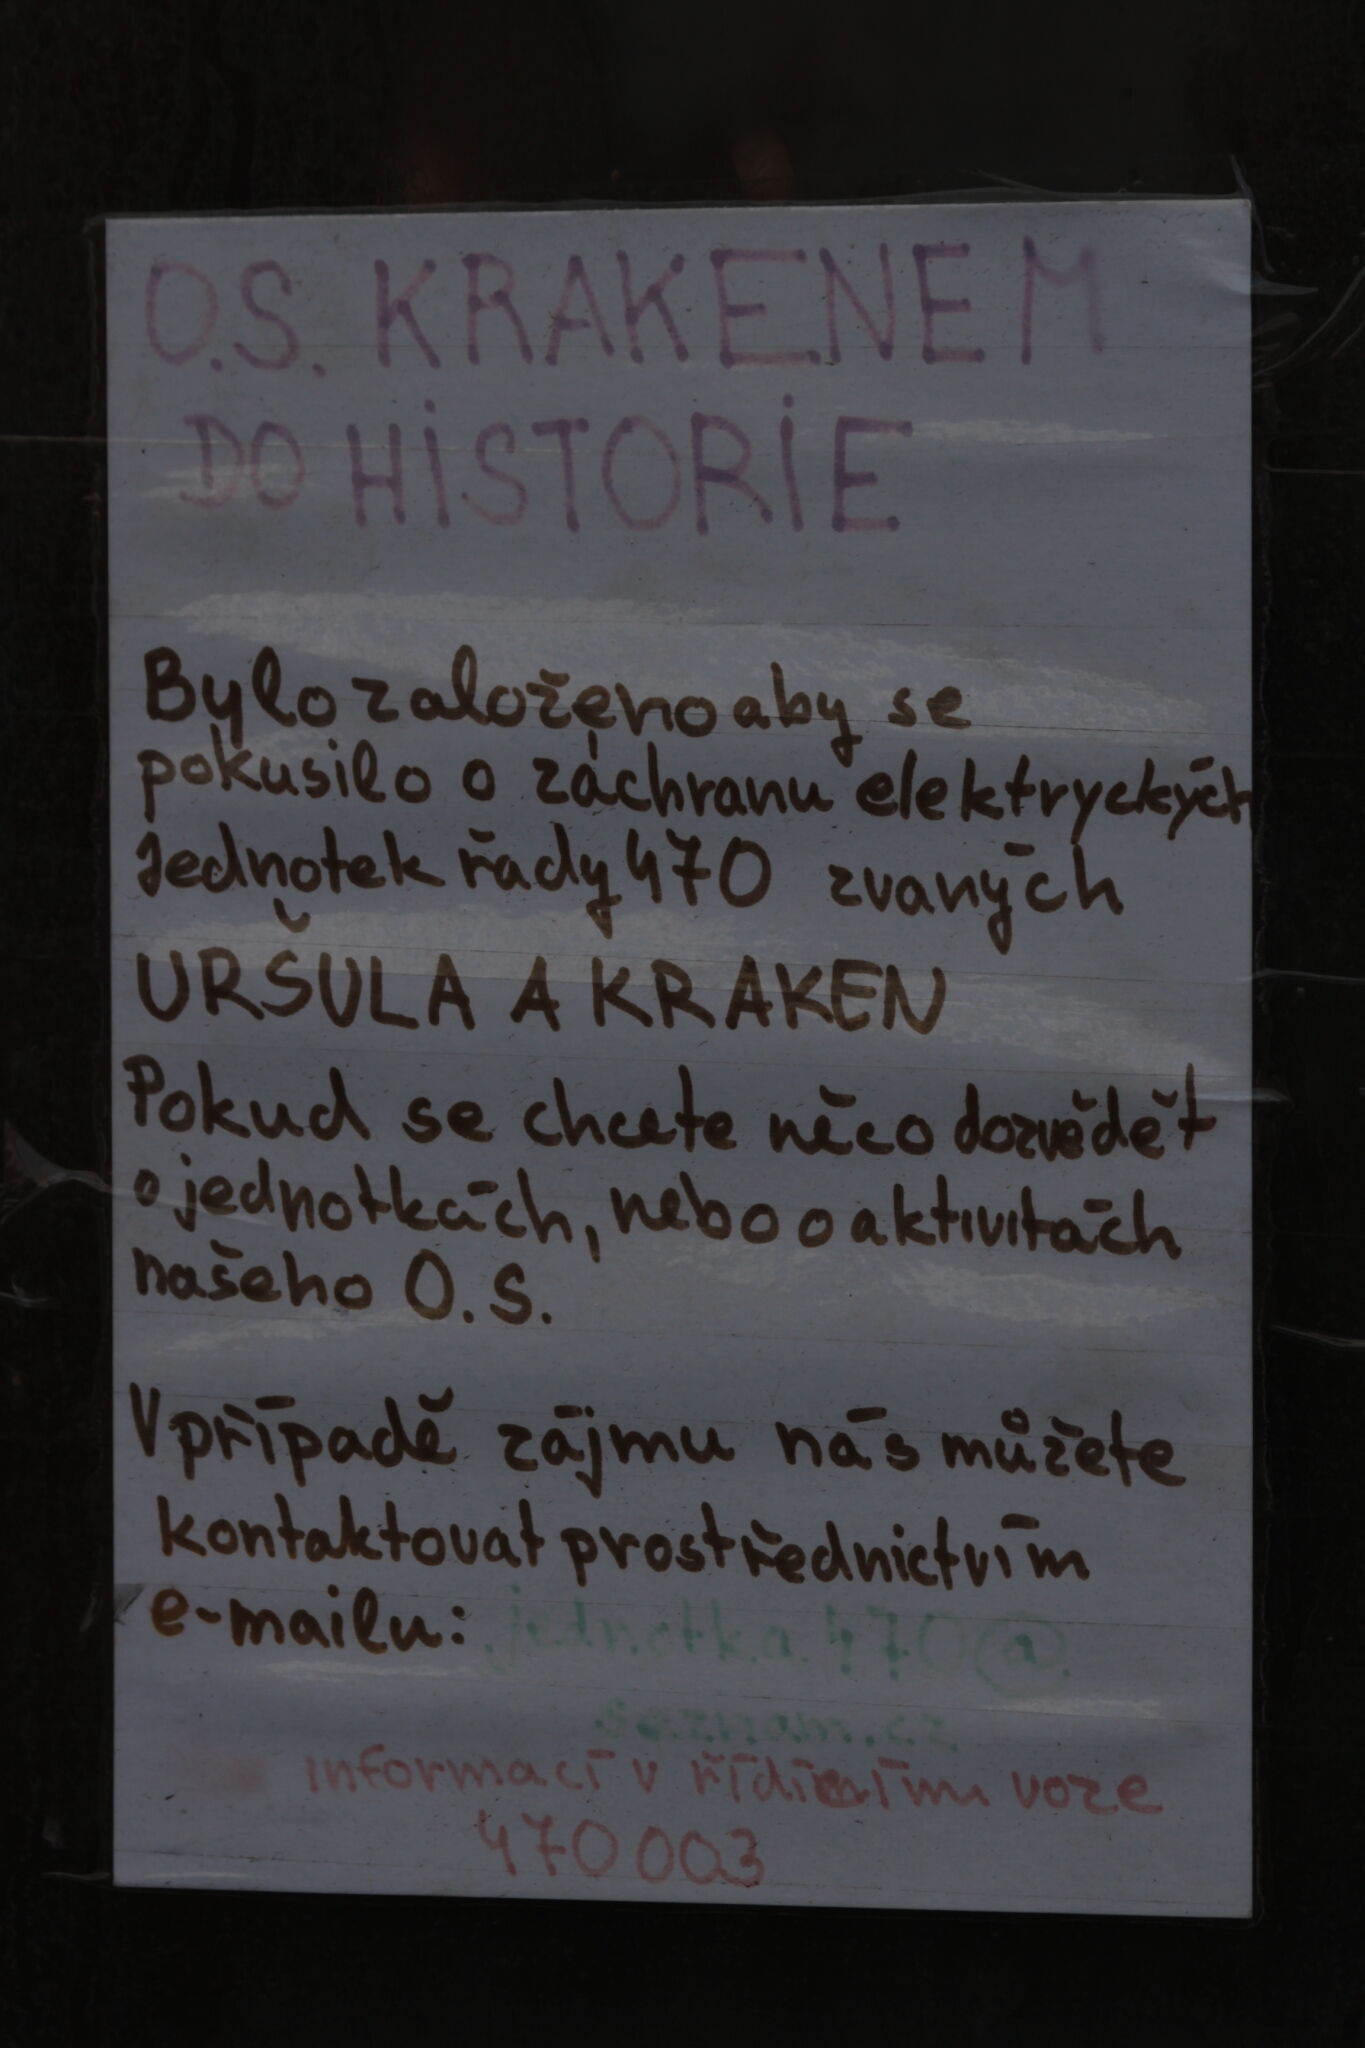 O.S. KRAKENEM
DO HISTORIE
Bylo založeno aby se
pokusilo o záchranu elektryckých
Jednotek řady 470 zvaných
URŠULA A KRAKEN
Pokud se chcete něco dozvědět
o jednotkách, nebo o aktivitách
našeho O.S.
V případě zájmu nás můžete
kontaktovat prostřednictvím
e-mailu: jednotka.470@
informací v řídícím voze
470 003